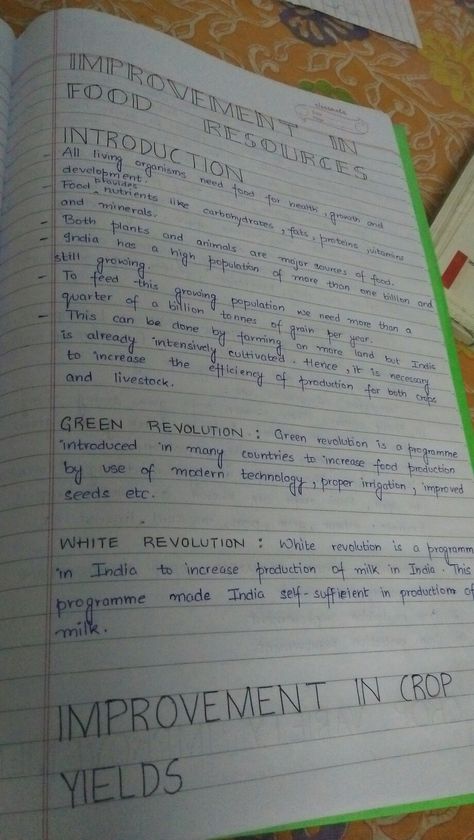 IMPROVEMENT IN
FOOD RESOURCES
INTRODUCTION
- All living organisms need food for health, growth and
development.
- Food provides nutrients like carbohydrates, fats, proteins, vitamins
and minerals.
- Both plants and animals are major sources of food.
- India has a high population of more than one billion and
still growing.
- To feed this growing population we need more than a
quarter of a billion tonnes of grain per year.
- This can be done by farming on more land but India
is already intensively cultivated. Hence, it is necessary
to increase the efficiency of production for both crops
and livestock.
GREEN REVOLUTION : Green revolution is a programme
introduced in many countries to increase food production
by use of modern technology, proper irrigation, improved
seeds etc.
WHITE REVOLUTION : White revolution is a programm
in India to increase production of milk in India. This
programme made India self-suffieient in production of
milk.
IMPROVEMENT IN CROP
YIELDS